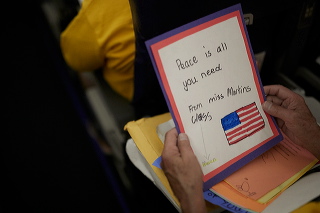 Peace is all
you need
From miss Martins
Class